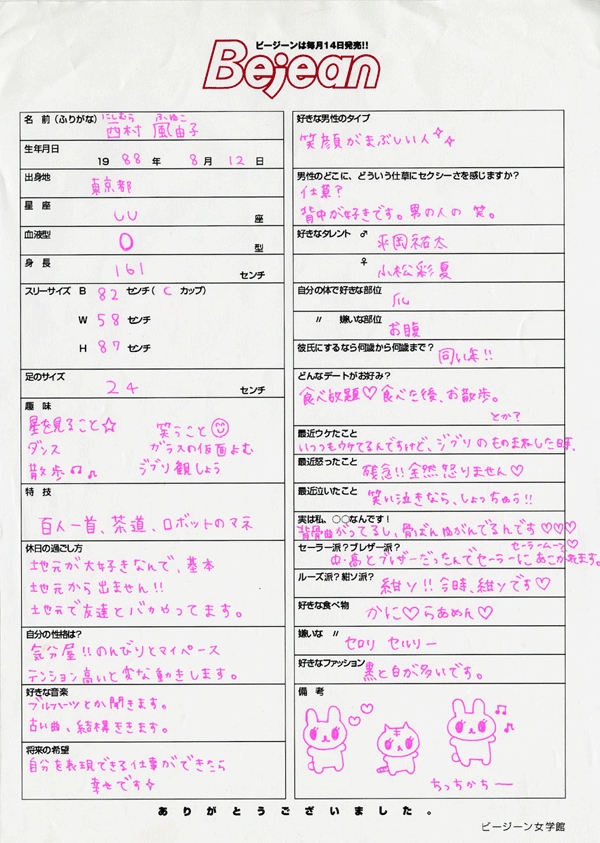 ビージーンは毎月14日発売!!
Bejean
名 前(ふりがな)
にしむら ふゆこ
西村 風由子
生年月日
1988年 8月 12日
出身地
東京都
星 座
しし 座
血液型
O 型
身 長
161 センチ
スリーサイズ B 82 センチ( C カップ)
W 58 センチ
H 87 センチ
足のサイズ
24 センチ
趣 味
星を見ること☆ 笑うこと
ダンス ガラスの仮面よむ
散歩♫♫ ジブリ観しょう
特 技
百人一首、茶道、ロボットのマネ
休日の過ごし方
地元が大好きなんで、基本
地元から出ません!!
地元で友達とバカやってます。
自分の性格は?
気分屋!!のんびりとマイペース
テンション高いと変な動きします。
好きな音楽
ブルーハーツとか聞きます。
古い曲、結構ききます。
将来の希望
自分を表現できる仕事ができたら
幸せです☆
好きな男性のタイプ
笑顔がまぶしい人
男性のどこに、どういう仕草にセクシーさを感じますか?
仕草?
背中が好きです。男の人の 笑。
好きなタレント ♂ 平岡祐太
♀ 小松彩夏
自分の体で好きな部位
爪
〃 嫌いな部位
お腹
彼氏にするなら何歳から何歳まで?
同い年!!
どんなデートがお好み?
食べ放題♡食べた後、お散歩。
とか?
最近ウケたこと
いっつもウケてるんですけど、ジブリのものまねした時。
最近怒ったこと
残念!!全然怒りません♡
最近泣いたこと
笑い泣きなら、しょっちゅう!!
実は私、○○なんです!
背骨曲がってるし、骨ばんゆがんでるんです♡♡♡
セーラー派?ブレザー派?
セーラームーン♡
中・高とブレザーだったんでセーラーにあこがれます。
ルーズ派?紺ソ派?
紺ソ!!今時、紺ソです♡
好きな食べ物
かに♡らあめん♡
嫌いな 〃
セロリ セルリー
好きなファッション
黒と白が多いです。
備 考
ちっちかちー
ありがとうございました。
ビージーン女学館